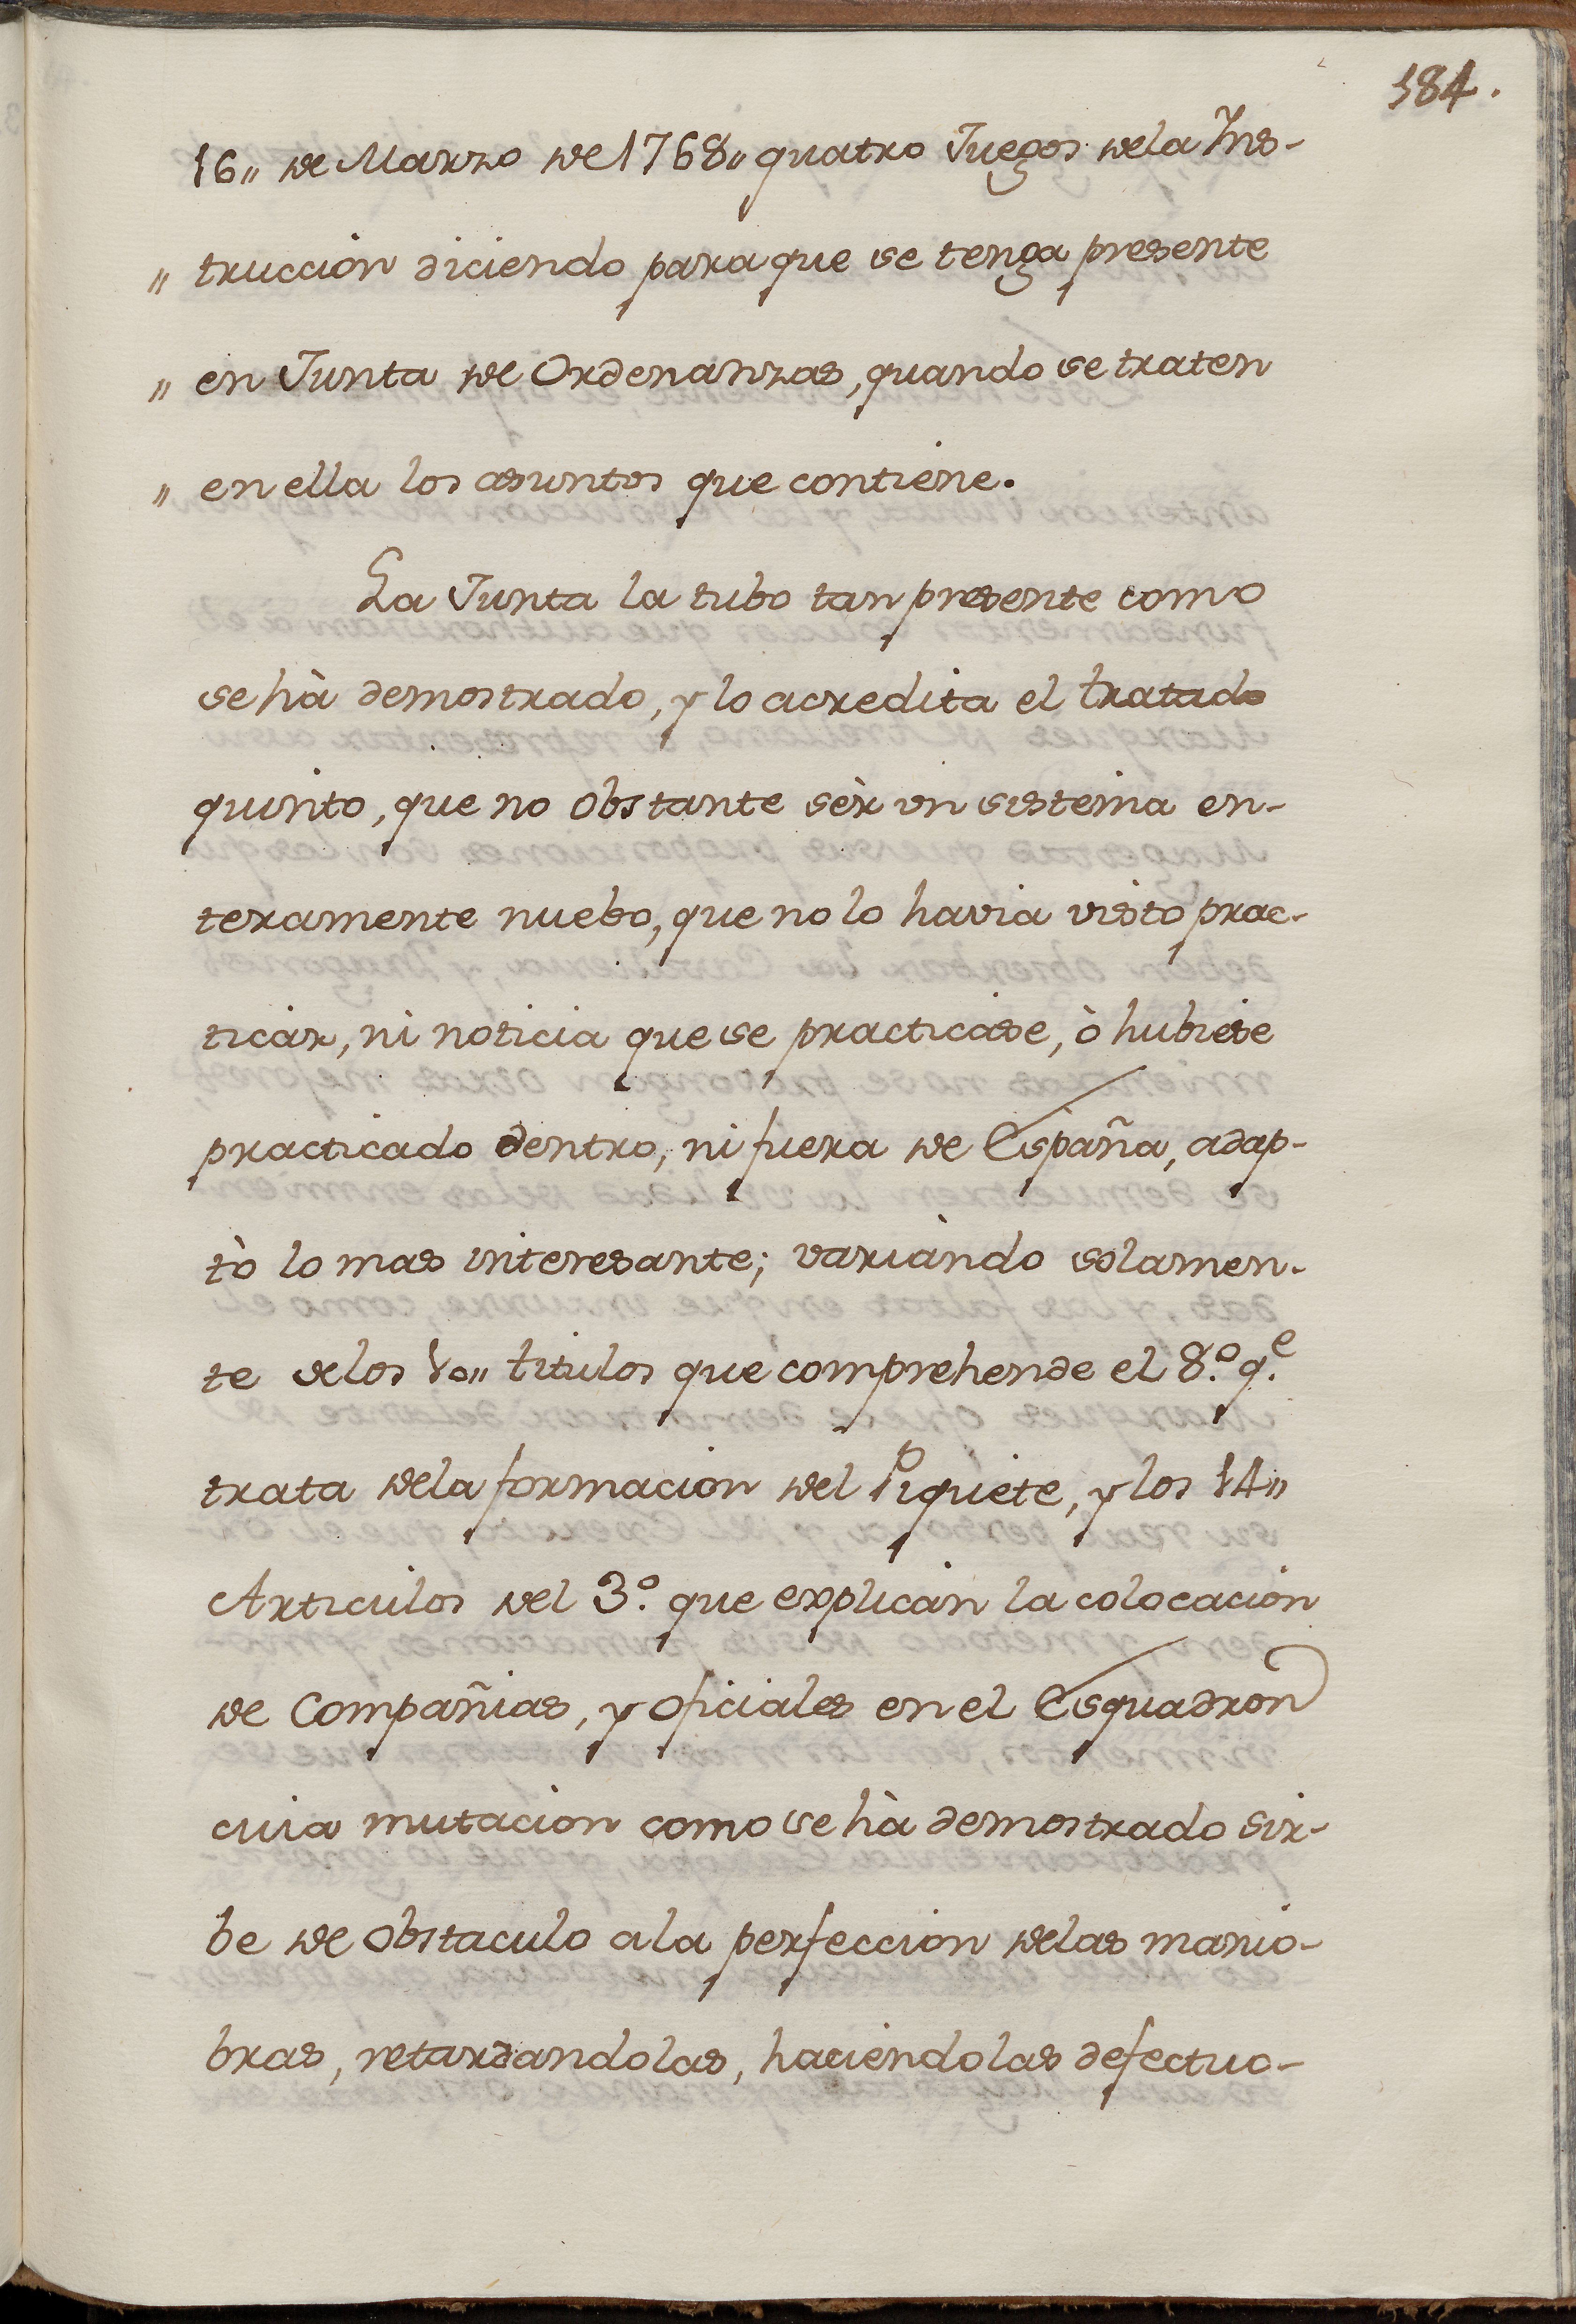 184.
16„ de Marzo de 1768„ quatro Juegos dela Ins-
„ truccion diciendo para que se tenga presente
„ en Junta de Ordenanzas, quando se traten
„ en ella los asuntos que contiene.
La Junta la tubo tan presente como
se hà demostrado, y lo acredita el tratado
quinto, que no obstante sèr un sistema en-
teramente nuebo, que no lo havia visto prac-
ticar, ni noticia que se practicase, ò hubiese
practicado dentro, ni fuera de España, adap-
tò lo mas interesante; variando solamen-
te delos 10„ titulos que comprehende el 8.º q.e
trata dela formacion del Piquete, y los 14„
Articulos del 3.º que explican la colocacion
de Compañias, y Oficiales en el Esquadron
cuia mutacion como se hà demostrado sir-
be de obstaculo ala perfeccion delas manio-
bras, retardandolas, haciendolas defectuo-